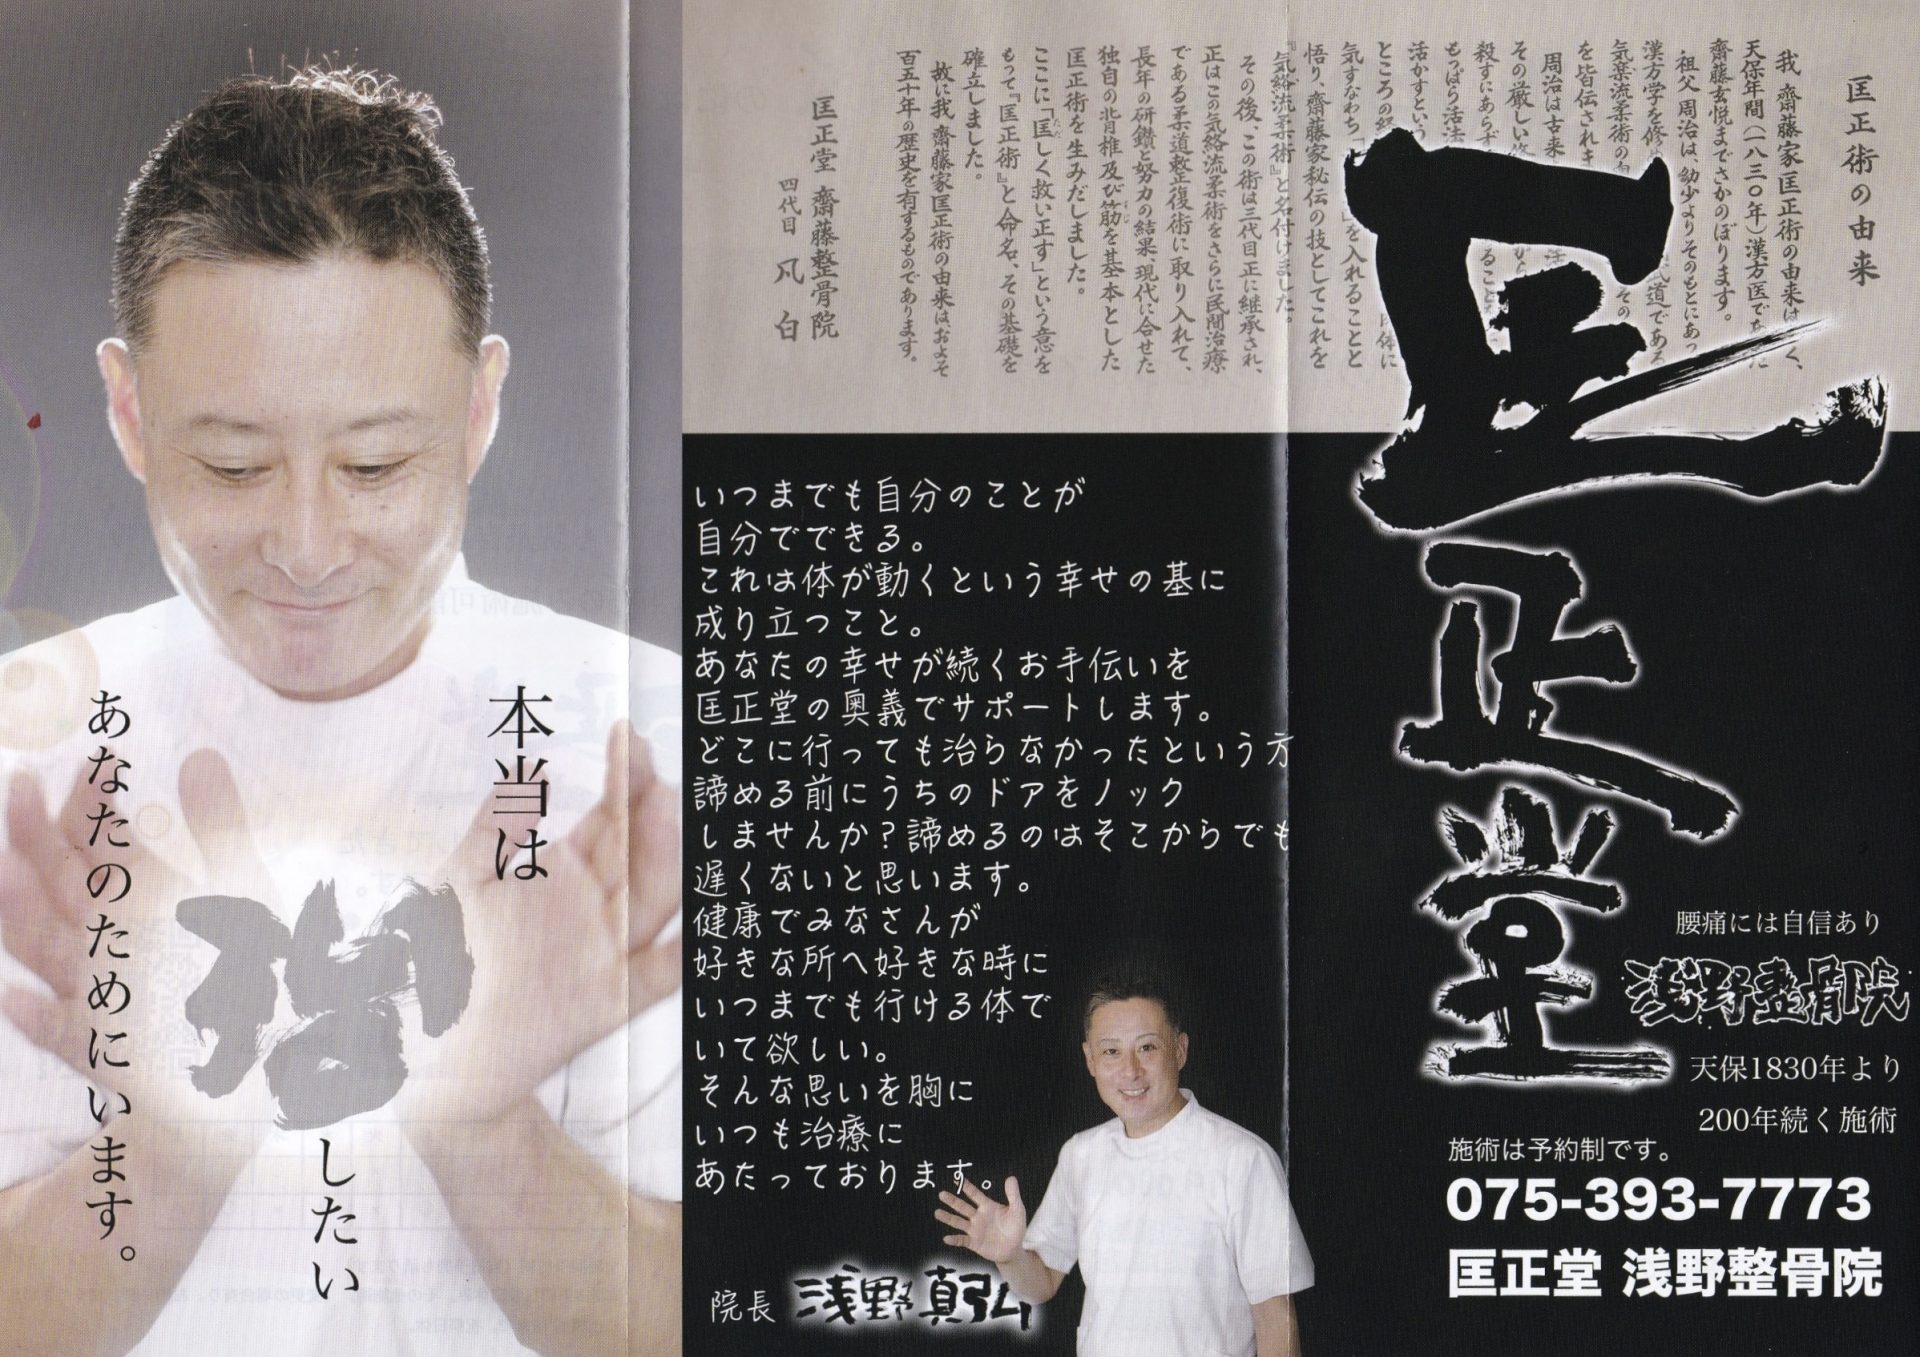 匡正術の由来
我 齋藤家匡正術の由来は
天保年間(一八三〇年)漢方医で
齋藤玄悦までさかのぼります。
祖父 周治は、幼少よりそのもとにあっ
漢方学を修
気楽流柔術の
を皆伝されま
周治は古来
その厳しい修
殺すにあらず
もっぱら活法
活かすという
ところの
気すなわち
を入れることと
悟り、齋藤家秘伝の技としてこれを
『気絡流柔術』と名付けました。
その後、この術は三代目正に継承され、
正はこの気絡流柔術をさらに民間治療
である柔道整復術に取り入れて、
長年の研鑽と努力の結果、現代に合せた
独自の背椎及び筋を基本とした
匡正術を生みだしました。
ここに「匡しく救い正す」という意を
もって『匡正術』と命名、その基礎を
確立しました。
故に我 齋藤家匡正術の由来はおよそ
百五十年の歴史を有するものであります。
匡正堂 齋藤整骨院
四代目 凡白
匡正堂
腰痛には自信あり
浅野整骨院
天保1830年より
200年続く施術
施術は予約制です。
075-393-7773
匡正堂 浅野整骨院
いつまでも自分のことが
自分でできる。
これは体が動くという幸せの基に
成り立つこと。
あなたの幸せが続くお手伝いを
匡正堂の奥義でサポートします。
どこに行っても治らなかったという方
諦める前にうちのドアをノック
しませんか?諦めるのはそこからでも
遅くないと思います。
健康でみなさんが
好きな所へ好きな時に
いつまでも行ける体で
いて欲しい。
そんな思いを胸に
いつも治療に
あたっております。
院長 浅野真弘
本当は
治したい
あなたのためにいます。